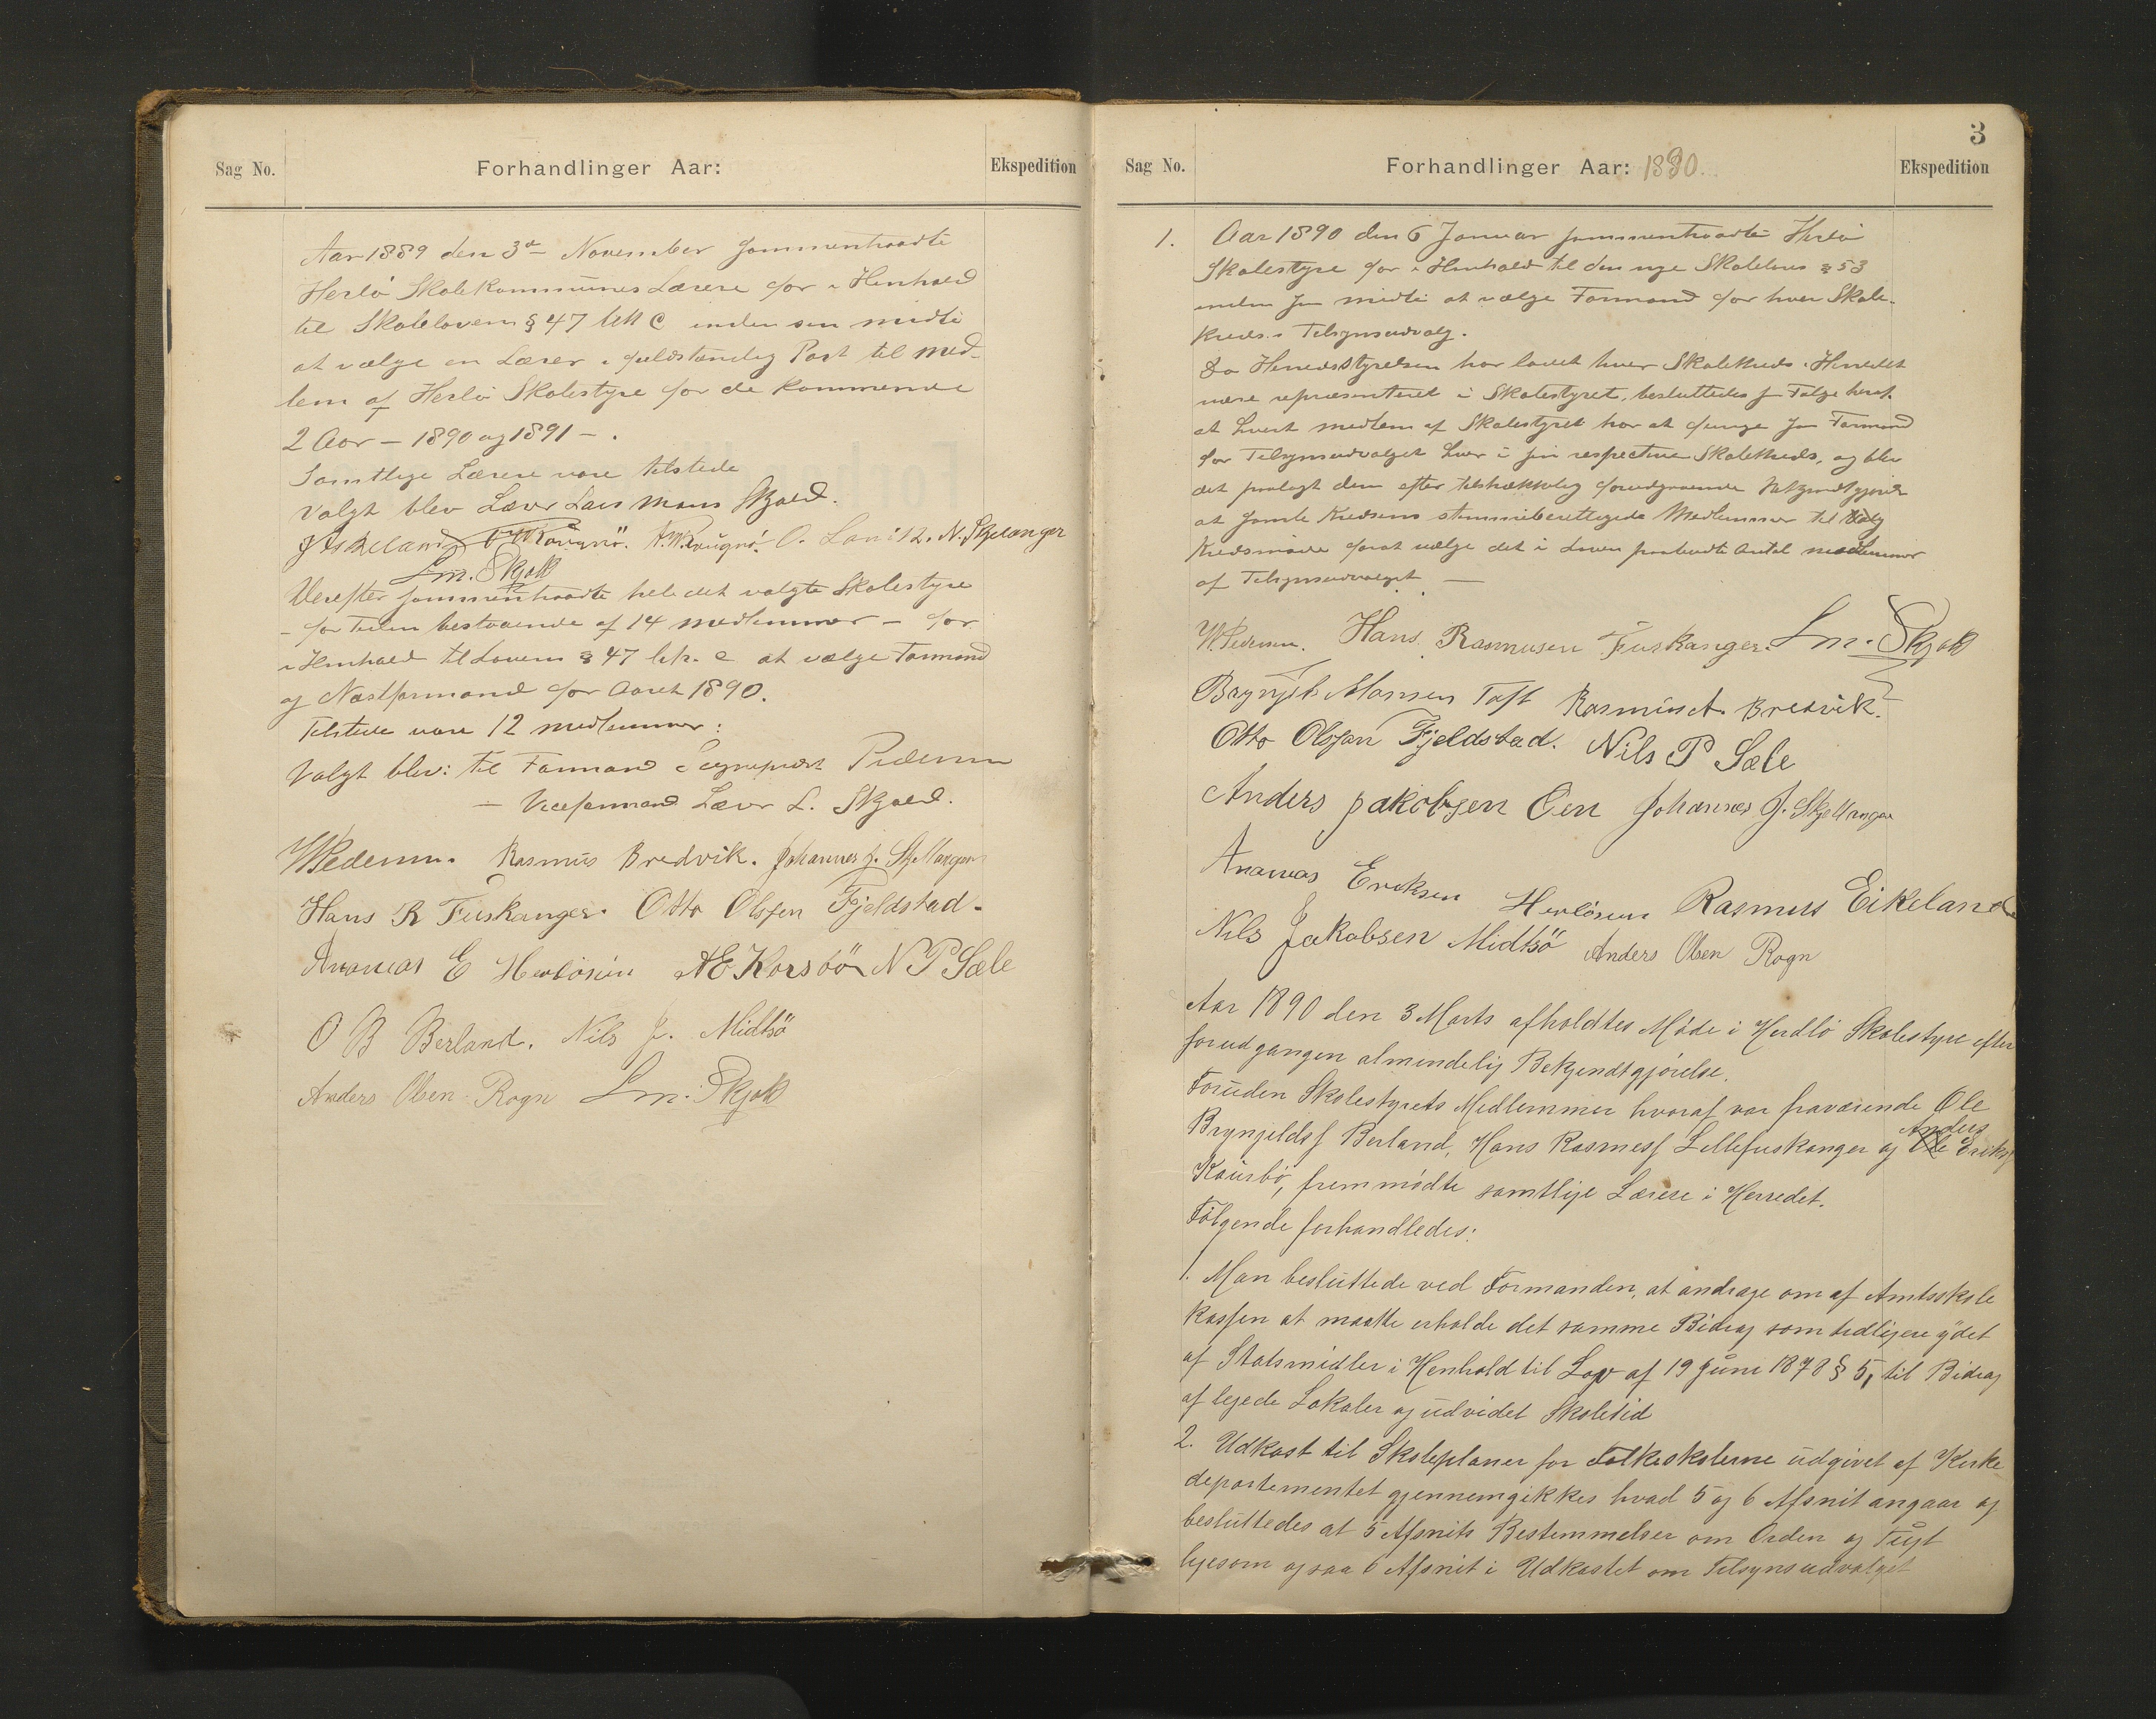 Sag No.
Forhandlinger Aar:
Ekspedition
Aar 1889 den 3d November sammentraadte
Herlö Skolekommunes Lærere for i Henhold
til Skoleloven § 47 litt C inden sin midte
at vælge en Lærer i fuldstændig Post til med-
lem af Herlö Skolestyre for de kommende
2 Aar – 1890 og 1891 – .
Samtlige Lærere vare tilstede
Valgt blev Lærer Lars Mons Skjold.
J Askeland O. Lanitz. N. Skjelanger
Lm. Skjold
Derefter sammentraadte hele det valgte Skolestyre
– for Tiden bestaaende af 14 medlemmer – for
i Henhold til Loven § 47 litr. e at vælge Formand
og Næstformand for Aaret 1890.
Tilstede vare 12 medlemmer:
Valgt blev: til Formand Sognepræst Pedersen
– Viceformand Lærer L. Skjold.
WPedersen. Rasmus Bredvik. Johannes J. Skjellanger
Hans R Fuskanger. Otto Olssen Fjeldstad.
Ananias E Herlösün AE Korsbö N P Sæle
O B Berland. Nils J. Midtsö
Anders Olsen Rogn Lm. Skjold
3
Sag No.
Forhandlinger Aar: 1890.
Ekspedition
1. Aar 1890 den 6 Januar sammentraadte Herlö
Skolestyre for i Henhold til den nye Skolelovs § 53
inden sin midte at vælge Formand for hver Skole-
kreds's Tilsynsudvalg.
Da Herredsstyrelsen har ladet hver Skolekreds i Herredet
være repræsenteret i Skolestyret, besluttedes som Følge heraf
at hvert medlem af Skolestyret har at fungere som Formand
for Tilsynsudvalget hver i sin respective Skolekreds, og blev
det paalagt dem efter tilstrækkelig forudgaaende Bekjendtgjørelse
at samle Kredsens stemmeberettigede Medlemmer til Valg
Kredsmøde forat vælge det i Loven paabudte Antal medlemmer
af Tilsynsudvalget. –
W. Pedersen. Hans Rasmusen Fuskanger. Lm. Skjold
Brynjel Monsen Toft Rasmus A. Bredvik.
Otto Olssen Fjeldstad. Nils P Sæle
Anders Jakobsen Öen Johannes J. Skjellanger
Ananias Eriksen Herlösun Rasmus Eikeland
Nils Jakobsen Midtsö Anders Olsen Rogn
Aar 1890 den 3 Marts afholdtes Möde i Herdlö Skolestyre efter
forudgangen almindelig Bekjendtgjörelse.
Foruden Skolestyrets Medlemmer hvoraf var fraværende Ole
Brynjeldss Berland, Hans Rasmess Lillefuskanger og Ole Anders Eriks
Kaursbö, fremmödte samtlige Lærere i Herredet.
Fölgende forhandledes:
1. Man besluttede ved Formanden, at andrage om af Amtsskole
kassen at maatte erholde det samme Bidrag som tidligere ydet
af Statsmidler i Henhold til Lov af 19 Juni 1878 § 5, til Bidrag
af lejede Lokaler og udvidet Skoletid
2. Udkast til Skoleplaner for Folkeskolerne udgivet af Kirke
departementet gjennemgikkes hvad 5 og 6 Afsnit angaar og
besluttedes at 5 Afsnits Bestemmelser om Orden og Tugt
ligesom ogsaa 6 Afsnit i Udkastet om Tilsynsudvalget